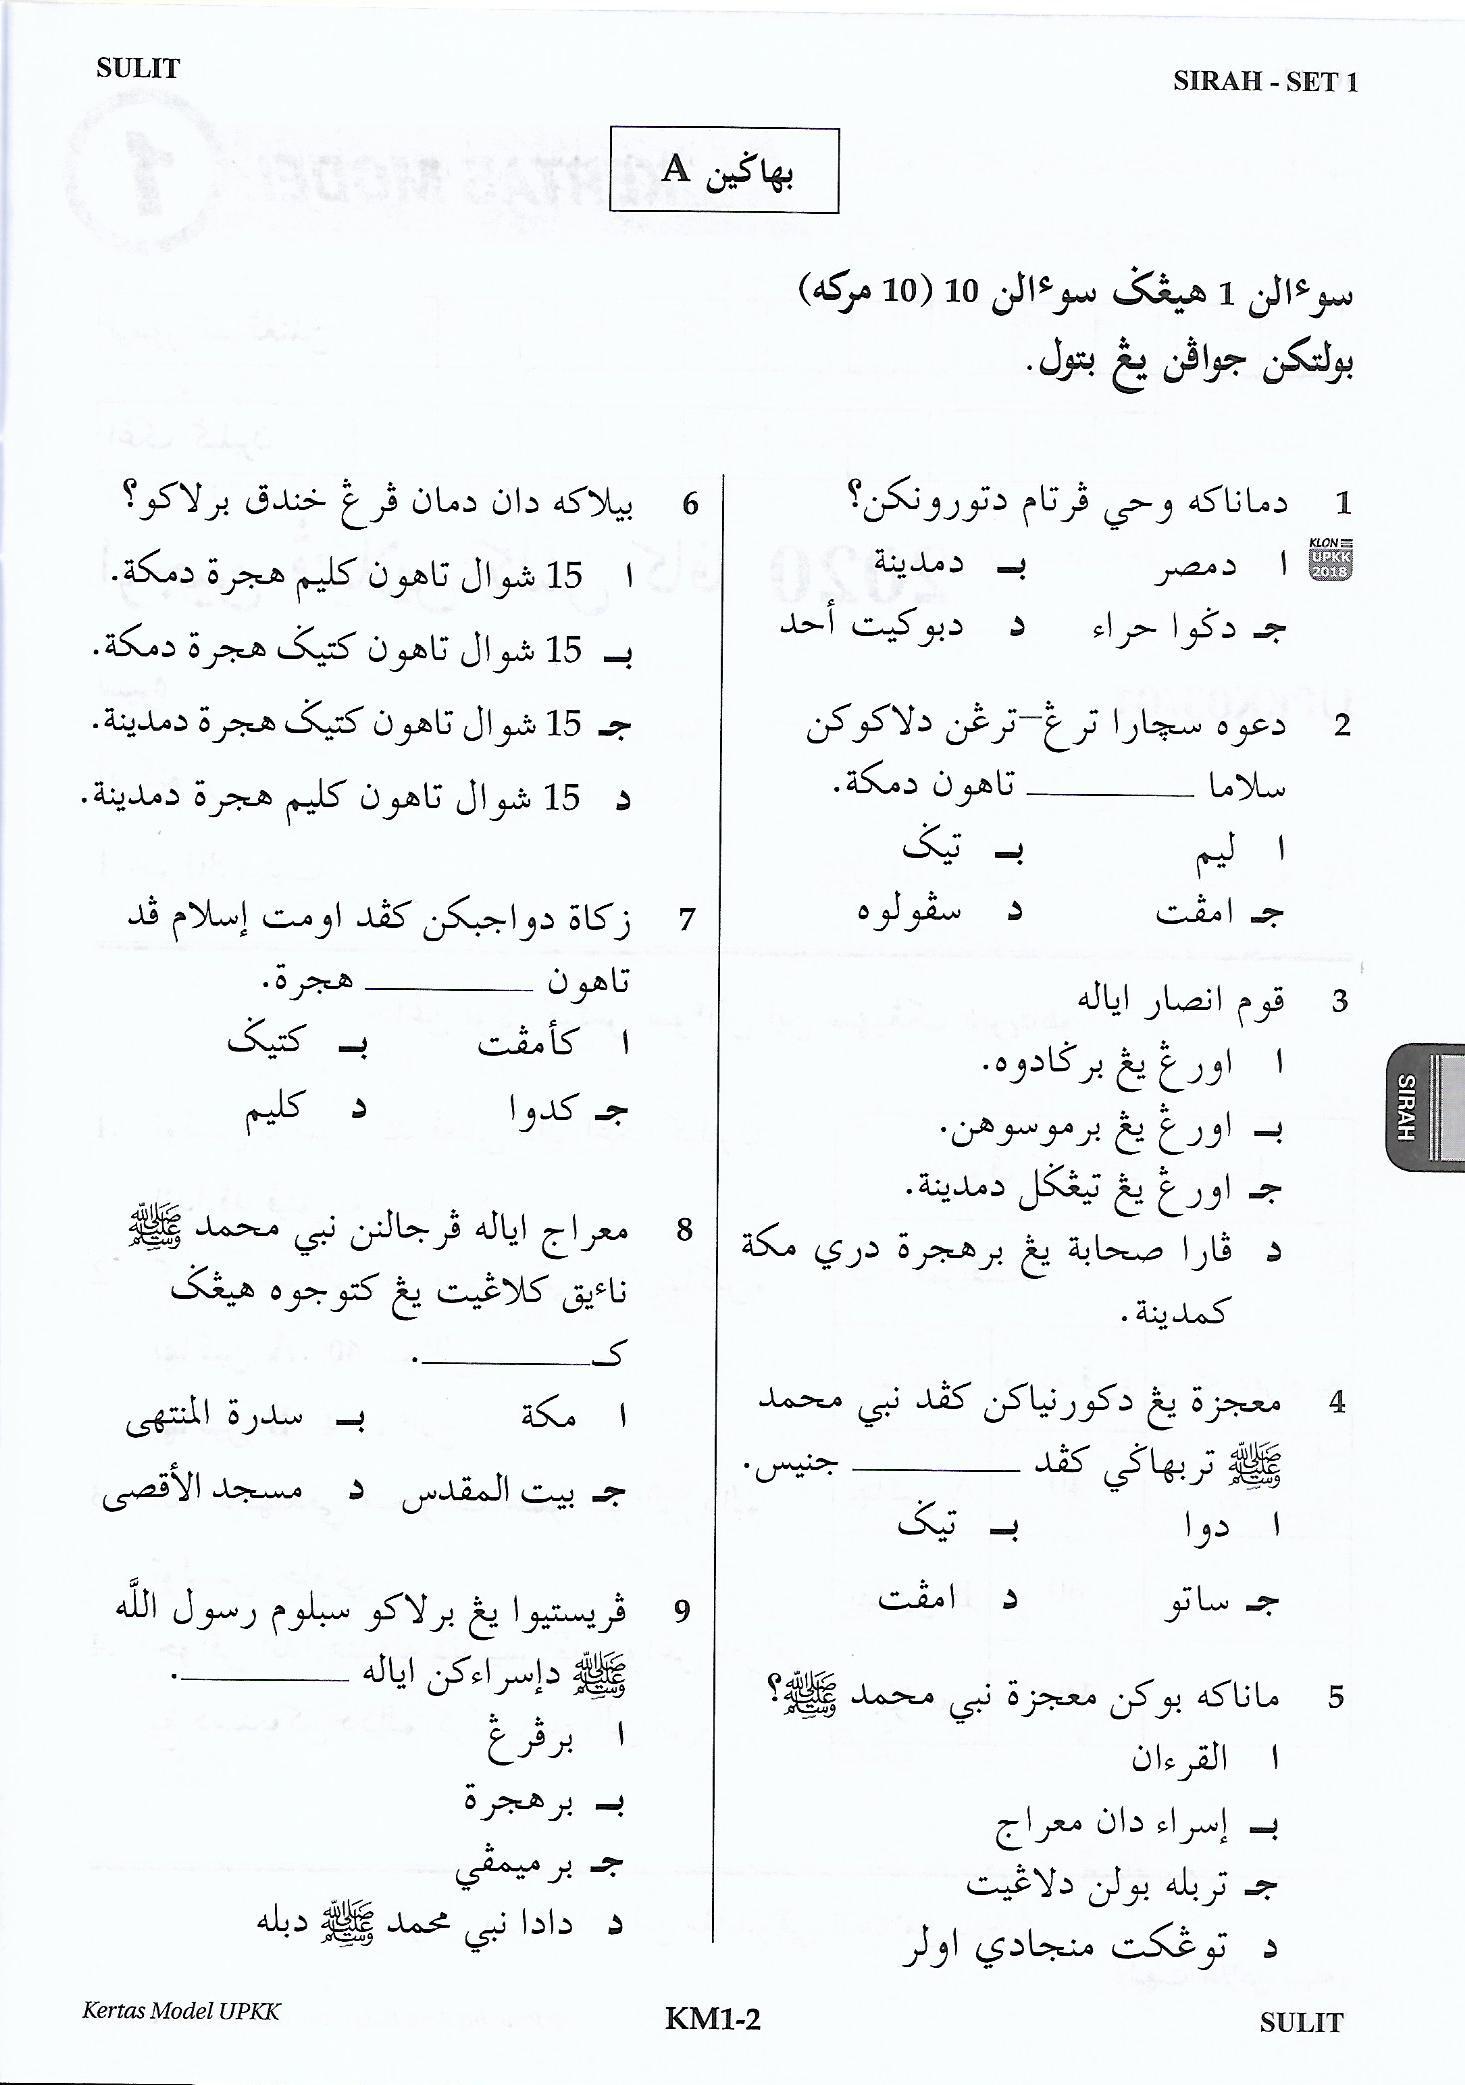 SULIT
SIRAH - SET 1
بهاݢين A
سوءالن 1 هيڠݢ سوءالن 10 (10 مركه)
بولتكن جواڤن يڠ بتول.
1 دماناكه وحي ڤرتام دتورونكن؟
KLON
UPKK
2018
ا دمصر بـ دمدينة
جـ دݢوا حراء د دبوكيت أحد
2 دعوه سچارا ترڠ–ترڠن دلاكوكن
سلاما ________ تاهون دمكة.
ا ليم بـ تيݢ
جـ امڤت د سڤولوه
3 قوم انصار اياله
ا اورڠ يڠ برݢادوه.
بـ اورڠ يڠ برموسوهن.
جـ اورڠ يڠ تيڠݢل دمدينة.
د ڤارا صحابة يڠ برهجرة دري مكة
كمدينة.
4 معجزة يڠ دكورنياكن كڤد نبي محمد
ﷺ تربهاݢي كڤد ________ جنيس.
ا دوا بـ تيݢ
جـ ساتو د امڤت
5 ماناكه بوكن معجزة نبي محمد ﷺ؟
ا القرءان
بـ إسراء دان معراج
جـ تربله بولن دلاڠيت
د توڠكت منجادي اولر
6 بيلاكه دان دمان ڤرڠ خندق برلاكو؟
ا 15 شوال تاهون كليم هجرة دمكة.
بـ 15 شوال تاهون كتيݢ هجرة دمكة.
جـ 15 شوال تاهون كتيݢ هجرة دمدينة.
د 15 شوال تاهون كليم هجرة دمدينة.
7 زكاة دواجبكن كڤد اومت إسلام ڤد
تاهون ________ هجرة.
ا كأمڤت بـ كتيݢ
جـ كدوا د كليم
8 معراج اياله ڤرجالنن نبي محمد ﷺ
ناءيق كلاڠيت يڠ كتوجوه هيڠݢ
كـ________.
ا مكة بـ سدرة المنتهى
جـ بيت المقدس د مسجد الأقصى
9 ڤريستيوا يڠ برلاكو سبلوم رسول اللّه
ﷺ دإسراءكن اياله ________.
ا برڤرڠ
بـ برهجرة
جـ برميمڤي
د دادا نبي محمد ﷺ دبله
SIRAH
Kertas Model UPKK
KM1-2
SULIT